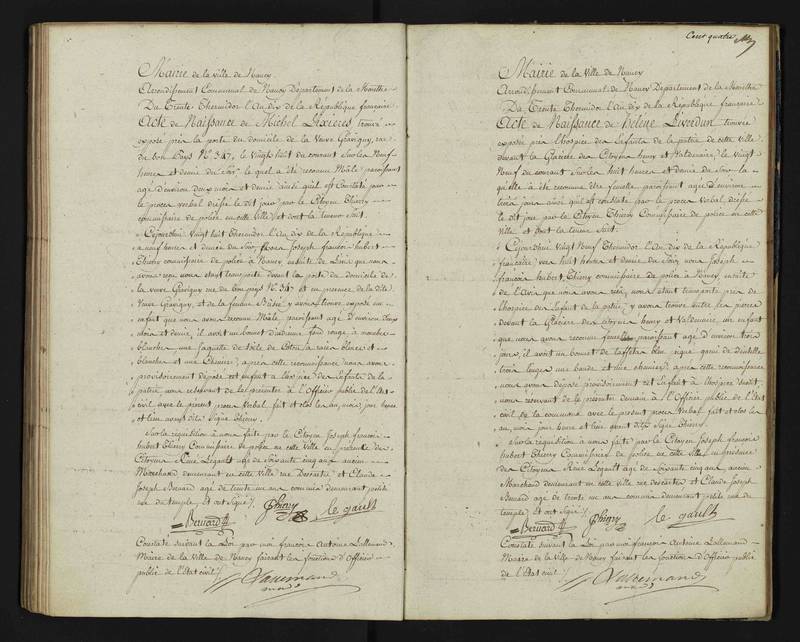 Mairie de la ville de Nancy
Arrondissement Communal de Nancy Département de la Meurthe
Du Trente Thermidor l'an dix de la République française
Acte de Naissance de Michel trouvé
exposé près la porte du domicile de la Veuve Gravigny, rue
du bon pays N.° 347, le Vingt huit du courant sur les Neuf
heures et demie du soir, lequel a été reconnu Mâle, paroissant
agé d'environ deux mois et demie ainsi qu'il est Constaté par
le procès verbal dressé le dit jour par le Citoyen Thiery
commissaire de police en cette Ville, et dont la teneur suit.
Cejourd'hui Vingt huit Thermidor l'an dix de la République
a neuf heures et demie du soir, Nous Joseph françois hubert
Thiery commissaire de police à Nancy, ensuite de l'avis que nous
avons reçu nous étant transporté devant la porte du domicile de
la veuve Gravigny rue du bon pays N.° 347 et en presence de la dite
Veuve Gravigny, et de la femme y avons trouvé exposé un
enfant que nous avons reconnu Mâle, paroissant agé d'environ deux
mois et demie, il avoit un bonnet d'indienne fond rouge à mouches
blanches, une jaquette de toile de Coton à raies bleues et
blanches et une Chemise; après cette reconnoissance nous avons
provisoirement déposé cet enfant à l'hospice des Enfants de la
patrie nous réservant de les présenter à l'Officier public de l'Etat
civil avec le présent procès Verbal, fait et clos les an, mois, jour, heure
et lieu avant dits. Signé Thiery.
Sur la requisition à nous faite par le Citoyen Joseph françois
hubert Thiery Commissaire de police en cette Ville en presence des
Citoyens Legault agé de soixante cinq ans, ancien
Marchand demeurant en cette Ville rue Descartes et Claude
Joseph Bernard agé de trente un ans commis demeurant petite
rue du temple, Et ont Signé
Bernard Thiery le gault
Constaté suivant la Loi par moi françois Antoine Lallemand
Maire de la Ville de Nancy faisant les fonctions d'Officier
public de l'Etat civil.
Lallemand
Cent quatre
Mairie de la Ville de Nancy
Arrondissement Communal de Nancy Département de la Meurthe
Du Trente Thermidor l'an dix de la République française
Acte de Naissance de Helene Liverdun trouvée
exposée près l'hospice des Enfants de la patrie de cette ville
devant la Glacière des Citoyens henry et Valdenaire, le Vingt
Neuf du courant sur les huit heures et demie du soir la
quelle à été reconnue être femelle paroissant agé d'environ
trois jours ainsi qu'il est constaté par le procès verbal, dressé
le dit jour par le Citoyen Thiery Commissaire de police en cette
Ville et dont la teneur suit:
Cejourd'hui Vingt Neuf Thermidor l'an dix de la République
française vers huit heures et demie du soir, nous Joseph
françois hubert Thiery commissaire de police à Nancy, ensuite
de l'Avis que nous avons reçu, nous étant transporté près de
l'hospice des Enfants de la patrie, y avons trouvé entre les pierres
devant la Glacière des Citoyens henry et Valdenaire un enfant
que nous avons reconnu femelle paroissant agé d'environ trois
jours, il avoit un bonnet de taffetas bleu piqué garni de dentelle
trois langes une bande et une chemise; après cette reconnoissance
nous avons déposé provisoirement cet Enfant à l'hospice susdit,
nous réservant de le présenter demain à l'Officier public de l'Etat
civil de la commune avec le présent procès Verbal fait et clos les
an, mois jour heure et lieu avant dits. Signé Thiery.
Sur la requisition à nous faite par le Citoyen Joseph françois
hubert Thiery Commissaire de police en cette ville en presence
des Citoyens Legault agé de soixante cinq ans, ancien
Marchand demeurant en cette Ville rue descartes et Claude Joseph
Bernard agé de trente un ans commis demeurant petite rue du
temple, Et ont Signé
Bernard Thiery le gault
Constaté suivant la Loi par moi françois Antoine Lallemand
Maire de la Ville de Nancy faisant les fonctions d'Officier public
de l'Etat civil.
Lallemand